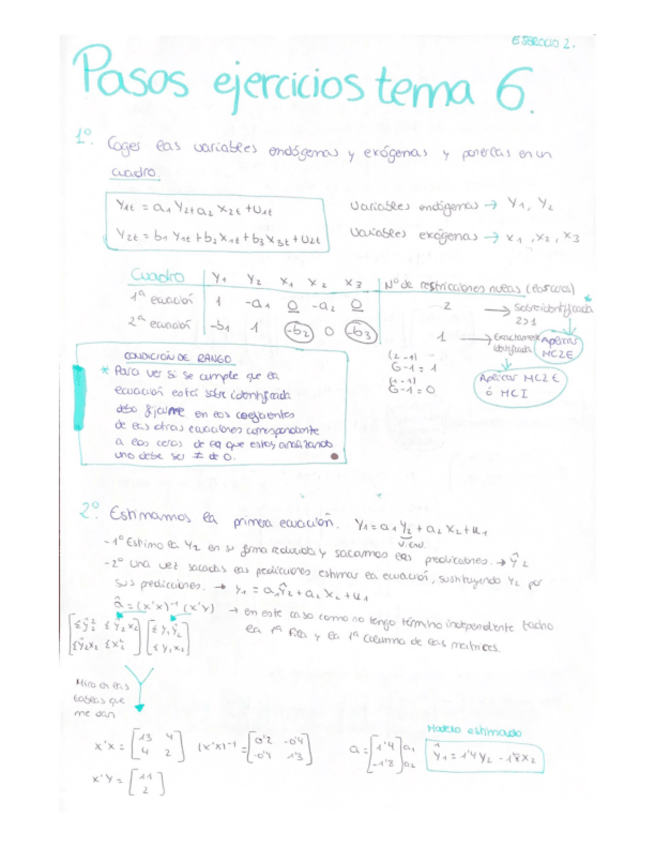 EJERCICIO 2.
Pasos ejercicios tema 6.
1º. Coges las variables endógenas y exógenas y ponerlas en un
cuadro.
Y1t = a1 Y2t + a2 X2t + U1t
Y2t = b1 Y1t + b2 X1t + b3 X3t + U2t
Variables endógenas → Y1, Y2
Variables exógenas → X1, X2, X3
Cuadro Y1 Y2 X1 X2 X3 Nº de restricciones nulas
1ª ecuación 1 -a1 0 -a2 0 2 → Sobreidentificada
2>1
2ª ecuación -b1 1 -b2 0 -b3 1 → Exactamente identificada
Aplicar MC2E
(2-1)
G-1 = 1
G-1 = 0
Aplicar MC2E
ó MCI
CONDICIÓN DE RANGO
* Para ver si se cumple que la
ecuación está sobreidentificada
debo fijarme en los coeficientes
de las otras ecuaciones correspondiente
a los ceros de la que estoy analizando
uno debe ser ≠ de 0.
2º. Estimamos la primera ecuación. Y1 = a1 Y2 + a2 X2 + u1
V. End.
-1º Estimo la Y2 en su forma reducida y sacamos las predicciones. → Ŷ2
-2º una vez sacadas las predicciones estimar la ecuación, sustituyendo Y2 por
sus predicciones. → Y1 = a1Ŷ2 + a2 X2 + u1
â = (X'X)⁻¹ (X'Y) → en este caso como no tengo término independiente tacho
la 1ª fila y la 1ª columna de las matrices.
[Σŷ2² Σŷ2X2] [Σy1ŷ2]
[Σŷ2X2 ΣX2²] [Σy1X2]
Miro en las
tablas que
me dan
X'X = [13 4] (X'X)⁻¹ = [0'2 -0'4] a = [1'4] a1
[4 2] [-0'4 1'3] [-1'8] a2
X'Y = [11]
[2]
Modelo estimado
Ŷ1 = 1'4Y2 - 1'8X2